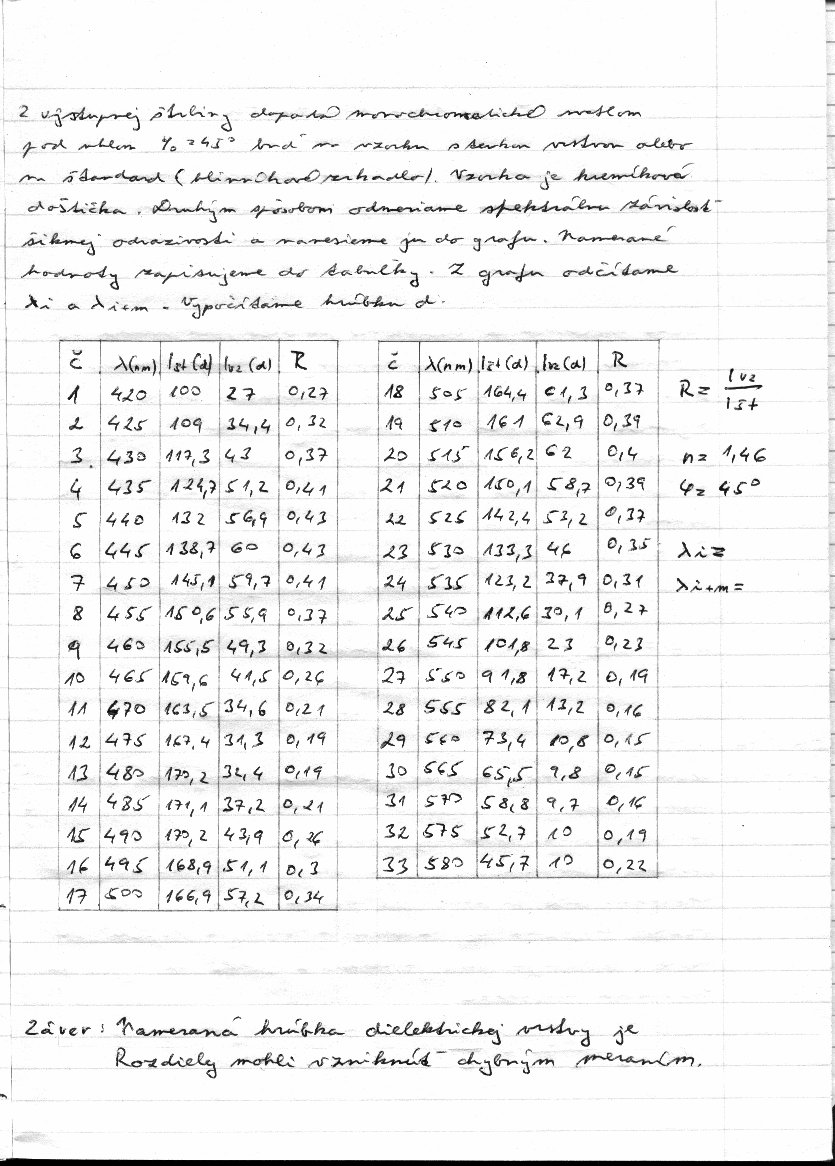 Z výstupnej štrbiny dopadá monochromatické svetlom
pod uhlom φ₀ = 45° buď na vzorku s tenkou vrstvou alebo
na štandard (hliníkové zrkadlo). Vzorka je kremíková
doštička. Druhým spôsobom odmeriame spektrálnu závislosť
šikmej odrazivosti a nanesieme ju do grafu. Namerané
hodnoty zapisujeme do tabuľky. Z grafu odčítame
λi a λi+m. Vypočítame hrúbku d.
č λ(nm) Ist(d) Ivz(d) R
1 420 100 27 0,27
2 425 109 34,4 0,32
3. 430 117,3 43 0,37
4 435 124,7 51,2 0,41
5 440 132 56,9 0,43
6 445 138,7 60 0,43
7 450 145,1 59,7 0,41
8 455 150,6 55,9 0,37
9 460 155,5 49,3 0,32
10 465 159,6 41,5 0,26
11 470 163,5 34,6 0,21
12 475 167,4 31,3 0,19
13 480 170,2 32,4 0,19
14 485 171,1 37,2 0,21
15 490 170,2 43,9 0,26
16 495 168,9 51,1 0,3
17 500 166,9 57,2 0,34
č λ(nm) Ist(d) Ivz(d) R
18 505 164,4 61,3 0,37
19 510 161 62,9 0,39
20 515 156,2 62 0,4
21 520 150,1 58,7 0,39
22 525 142,4 53,2 0,37
23 530 133,3 46 0,35
24 535 123,2 37,9 0,31
25 540 112,6 30,1 0,27
26 545 101,8 23 0,23
27 550 91,8 17,2 0,19
28 555 82,1 13,2 0,16
29 560 73,4 10,8 0,15
30 565 65,5 9,8 0,15
31 570 58,8 9,7 0,16
32 575 52,7 10 0,19
33 580 45,7 10 0,22
R = Ivz
Ist
n = 1,46
φ = 45°
λi =
λi+m =
Záver: Nameraná hrúbka dielektrickej vrstvy je
Rozdiely mohli vzniknúť chybným meraním.